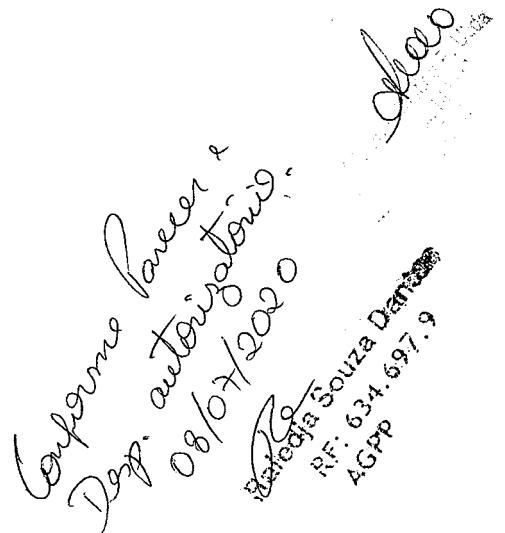 Conforme Parecer e
Desp. autorizatório:
08/07/2020
Souza Dantas
RF: 634.697.9
AGPP
Ltda